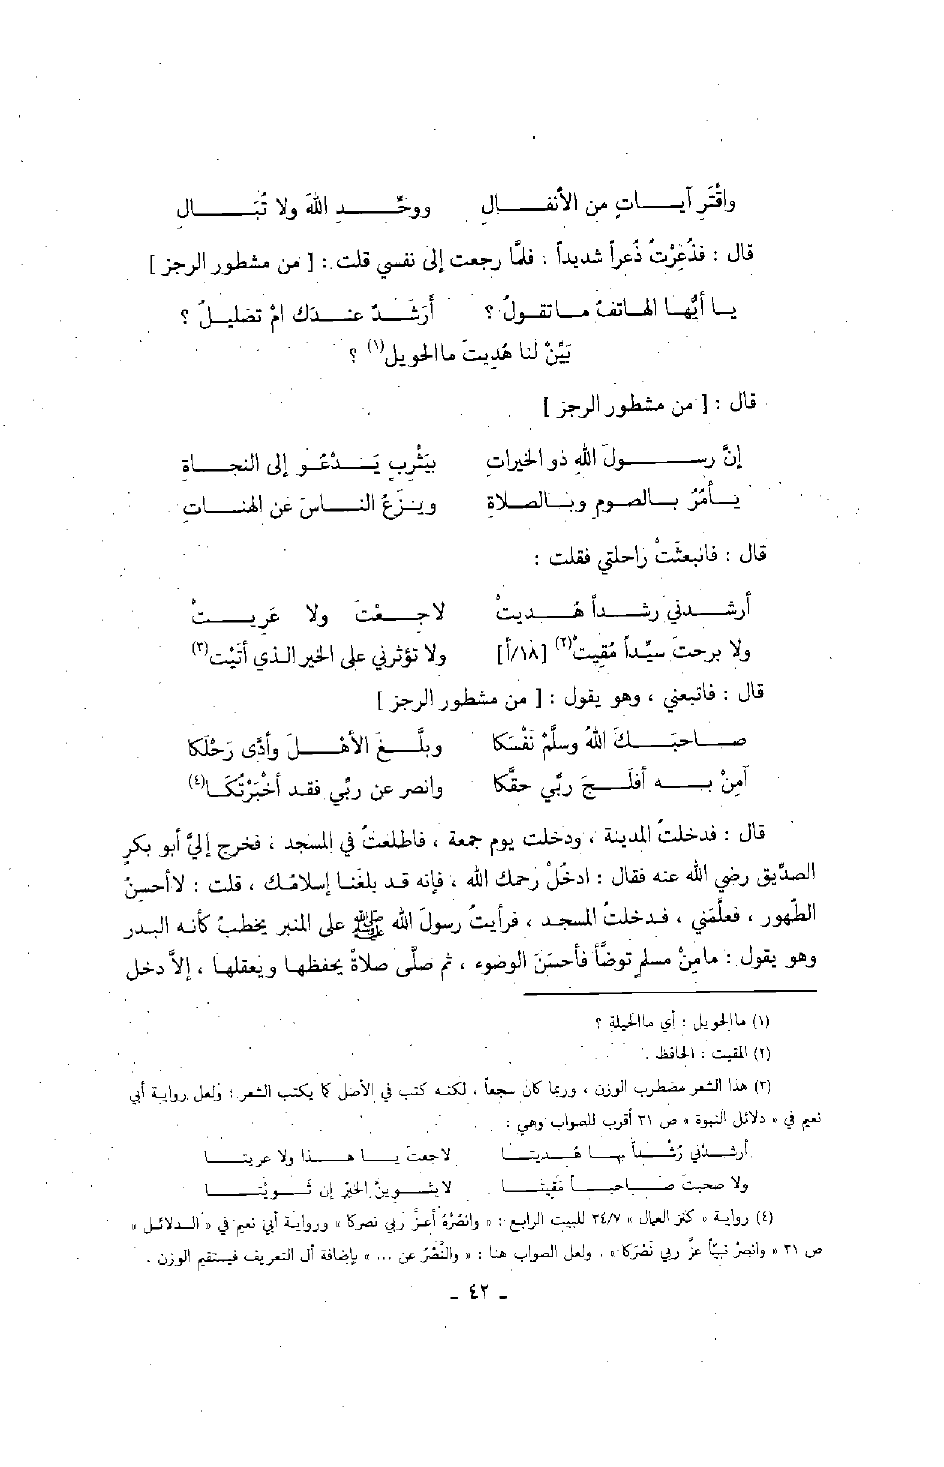 واقْتَرِ آيـــاتٍ من الأنفـــال ووحِّـــدِ اللهَ ولا تُبَـــال
قال : فذُعِرْتُ ذُعراً شديداً . فلمَّا رجعت إلى نفسي قلت : [ من مشطور الرجز ]
يـا أيُّهـا الهـاتفُ مـاتقـولُ ؟ أَرَشَـدٌ عنـدك امْ تضليـلُ ؟
بَيِّنْ لنا هُديتَ ماالحويل(١) ؟
قال : [ من مشطور الرجز ]
إنَّ رســـولَ اللهِ ذو الخيراتِ بيَثْرِبٍ يَـدْعُـو إلى النجـاةِ
يـأمُرُ بـالصومِ وبـالصـلاةِ ويـزَعُ النـاسَ عن الهنـاتِ
قال : فانبعثَتْ راحلتي فقلت :
أرشـدني رشـداً هُـديتْ لاجـعْتَ ولا عَرِيـتْ
ولا برحتَ سيِّداً مُقِيتْ(٢) [١٨/أ] ولا تؤثرني على الخير الذي أتَيْت(٣)
قال : فاتبعني ، وهو يقول : [ من مشطور الرجز ]
صـاحبَـكَ اللهُ وسلَّمْ نفْسَكا وبلَّـغَ الأهْـلَ وأدَّى رَحْلَكا
آمِنْ بـه أفلَـجَ ربِّي حقَّكا وانصر عن ربِّي فقد أخْبَرْتُكَـا(٤)
قال : فدخلتُ المدينة ، ودخلت يوم جمعة ، فاطلعتُ في المسجد ، فخرج إليَّ أبو بكرٍ
الصدِّيق رضي الله عنه فقال : ادخُلْ رحمك الله ، فإنه قد بلغَنا إسلامُك ، قلت : لاأحسِنُ
الطُّهور ، فعلَّمَني ، فدخلتُ المسجد ، فرأيتُ رسولَ الله ﷺ على المنبر يخطبُ كأنه البدر
وهو يقول : مامِنْ مسلمٍ توضَّأ فأحسَنَ الوضوء ، ثم صلَّى صلاةً يحفظها ويعقلها ، إلاَّ دخل
(١) ماالحويل : أي ماالحيلة ؟
(٢) المقيت : الحافظ .
(٣) هذا الشعر مضطرب الوزن ، وربما كان سجعاً ، لكنه كتب في الأصل كما يكتب الشعر : ولعل رواية أبي
نعيم في « دلائل النبوة » ص ٣١ أقرب للصواب وهي :
أرشـدْني رُشْـداً بهـا هُـديتـا لاجعتَ يـا هـذا ولا عريتـا
ولا صحبتَ صـاحبـاً مَقيتـا لايثـوينَّ الخيرُ إن ثـويْتـا
(٤) رواية « كنز العمال » ٣٤/٧ للبيت الرابع : « وانصُرْهُ أعزَّ ربي نصركا » ورواية أبي نعيم في « الدلائل »
ص ٣١ « وانصرْ نبيّاً عزَّ ربي نَصْرَكا » . ولعل الصواب هنا : « والنَّصْرُ عن ... » بإضافة أل التعريف فيستقيم الوزن .
- ٤٢ -